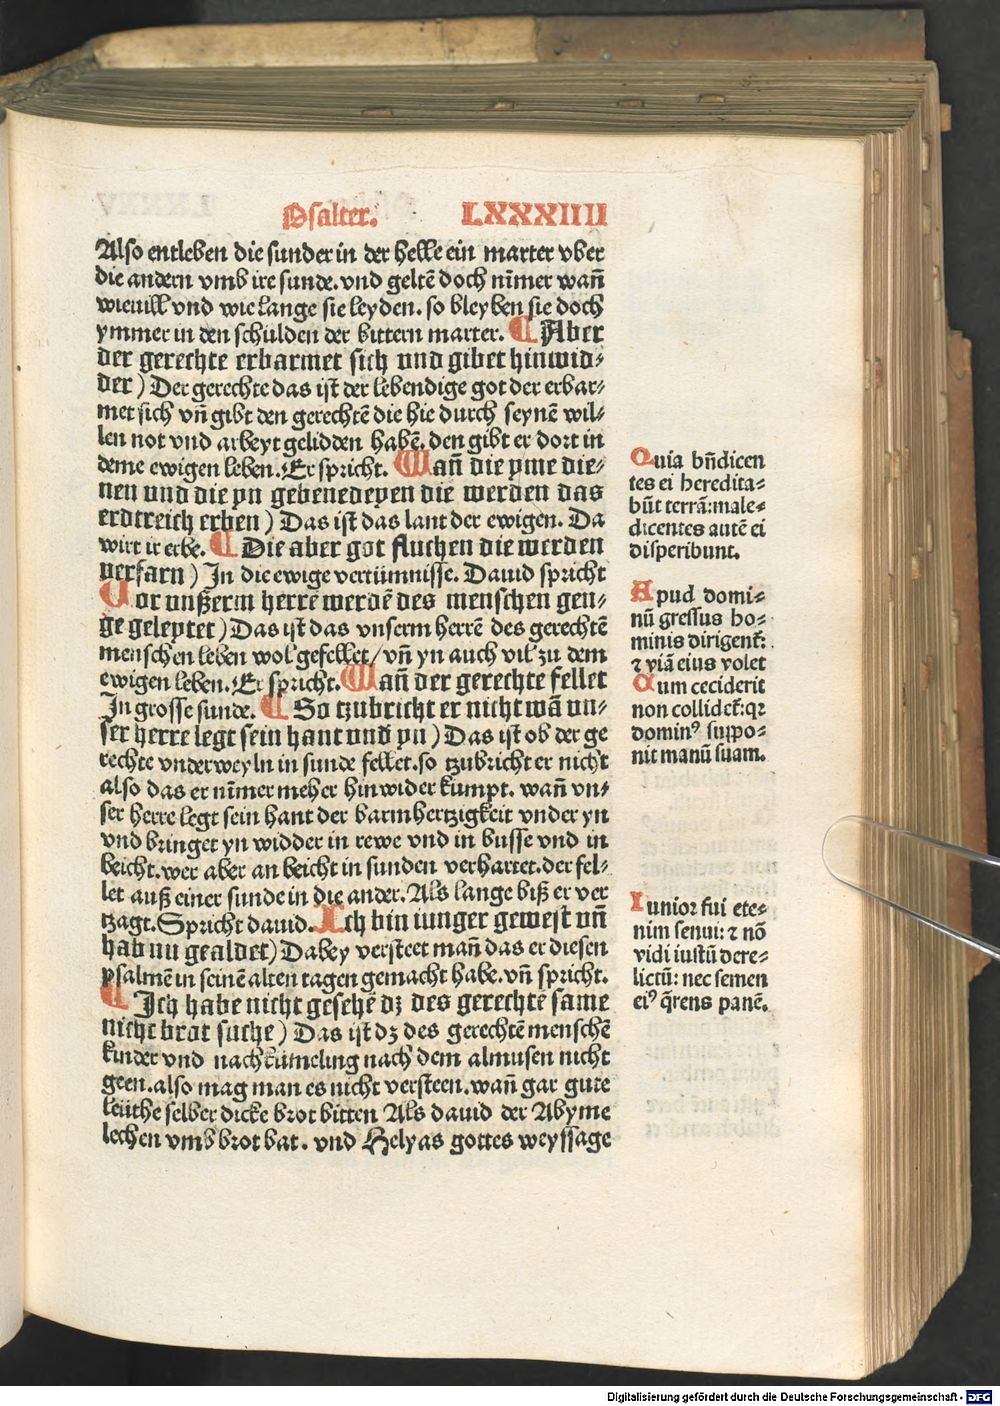 Psalter. LXXXIIII
Also entleben die sunder in der helle ein marter vber
die andern vmb ire sunde. vnd geltē doch nīmer wañ
wieuill vnd wie lange sie leyden. so bleyben sie doch
ymmer in den schulden der bittern marter. ¶ Aber
der gerechte erbarmet sich vnd gibet hinwid⸗
der) Der gerechte das ist der lebendige got der erbar⸗
met sich vñ gibt den gerechtē die hie durch seynē wil⸗
len not vnd arbeyt gelidden habē. den gibt er dort in
deme ewigen leben. Er spricht. Wañ die yme die⸗
nen vnd die yn gebenedeyen die werden das
erdtreich erben) Das ist das lant der ewigen. Da
wirt ir erbe. ¶ Die aber got fluchen die werden
verfarn) In die ewige vertümnisse. Dauid spricht
Vor vnßerm herrē werdē des menschen gen⸗
ge geleytet) Das ist das vnserm herrē des gerechtē
menschen leben wol gefellet/ vñ yn auch vil zu dem
ewigen leben. Er spricht. Wañ der gerechte fellet
In grosse sunde. ¶ So tzubricht er nicht wā vn⸗
ser herre legt sein hant vnd yn) Das ist ob der ge
rechte vnderweyln in sunde fellet. so tzubricht er nicht
also das er nīmer meher hinwider kumpt. wañ vn⸗
ser herre legt sein hant der barmhertzigkeit vnder yn
vnd bringet yn widder in rewe vnd in busse vnd in
beicht. wer aber an beicht in sunden verhartet. der fel⸗
let auß einer sunde in die ander. Als lange biß er ver
tzagt. Spricht dauid. Ich bin iunger gewest vñ
hab nu gealdet) Dabey versteet mañ das er diesen
psalmē in seinē alten tagen gemacht habe. vñ spricht.
¶ Ich habe nicht gesehē dz des gerechtē same
nicht brot suche) Das ist dz des gerechtē menschē
kinder vnd nachkümeling nach dem almusen nicht
geen. also mag man es nicht versteen. wañ gar gute
leüthe selber dicke brot bitten Als dauid der Abyme
lechen vmb brot bat. vnd Helyas gottes weyssage
Quia bñdicen
tes ei heredita⸗
būt terrā: male⸗
dicentes autē ei
disperibunt.
Apud domi⸗
nū gressus ho⸗
minis dirigent᷑:
⁊ viā eius volet
Cum ceciderit
non collidet᷑: qꝛ
dominꝰ suppo⸗
nit manū suam.
Iunior fui ete⸗
nim senui: ⁊ nō
vidi iustū dere⸗
lictū: nec semen
eiꝰ q̄rens panē.
Digitalisierung gefördert durch die Deutsche Forschungsgemeinschaft - DFG